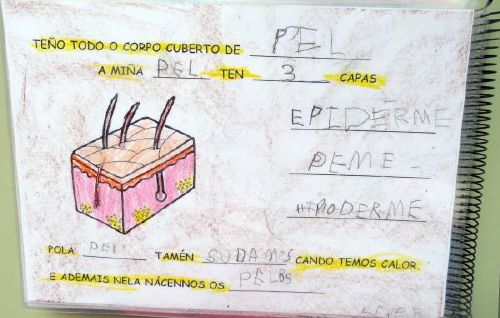 TEÑO TODO O CORPO CUBERTO DE PEL
A MIÑA PEL TEN 3 CAPAS
EPIDÉRME
DEME
HIPODERME
POLA PEL TAMÉN SUDAMOS CANDO TEMOS CALOR.
E ADEMAIS NELA NÁCENNOS OS PELOS